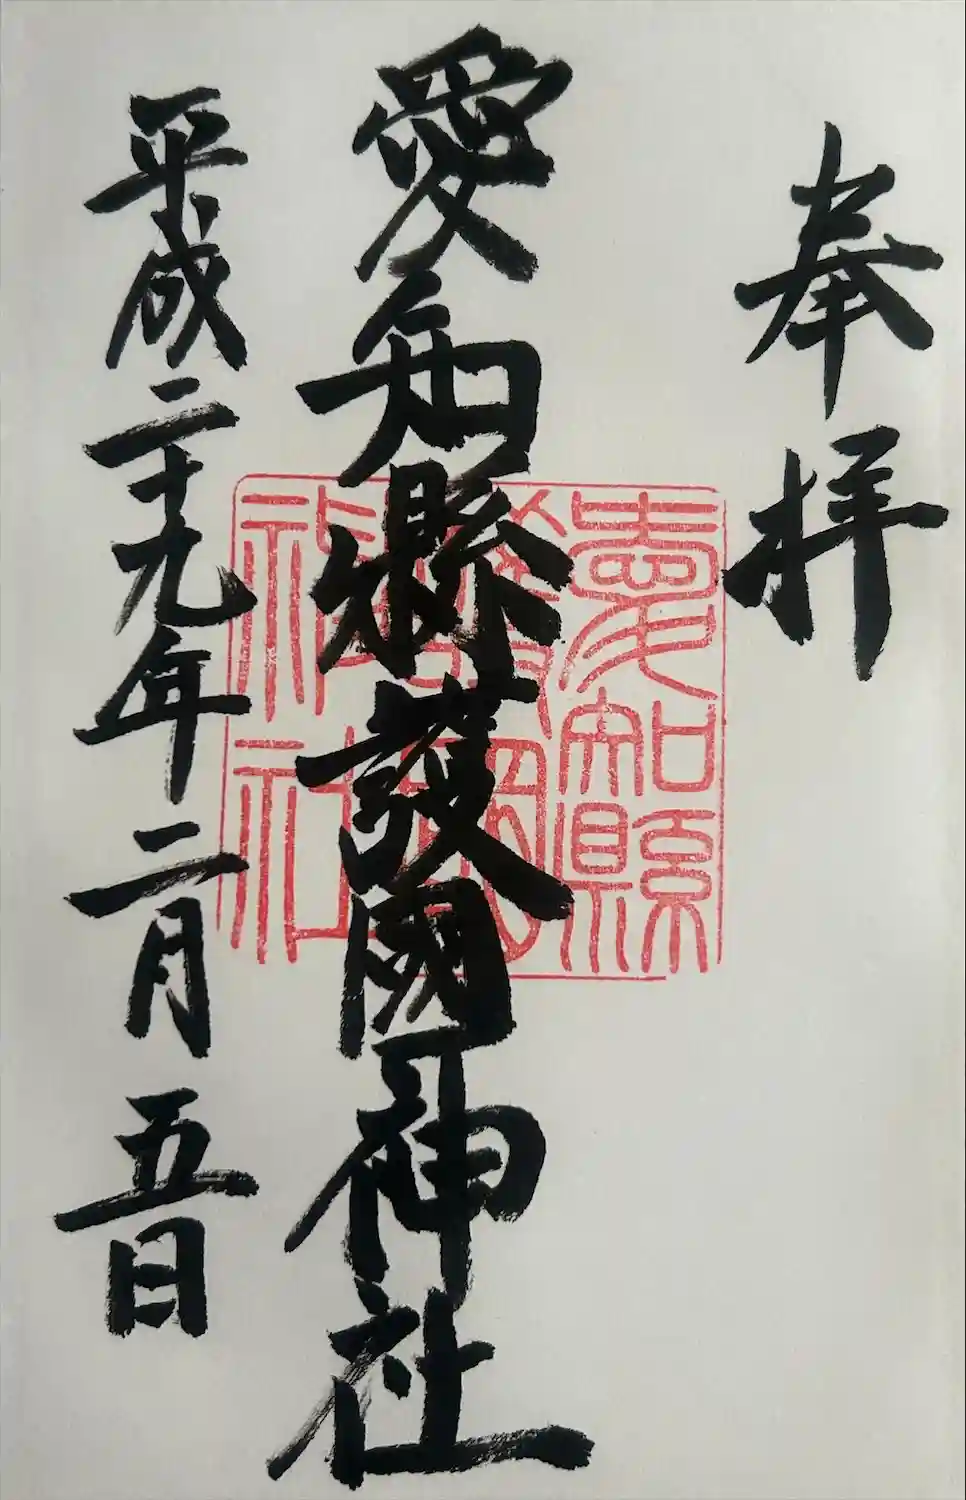 奉拝
愛知縣護國神社
愛知縣護國神社
平成二十九年二月五日